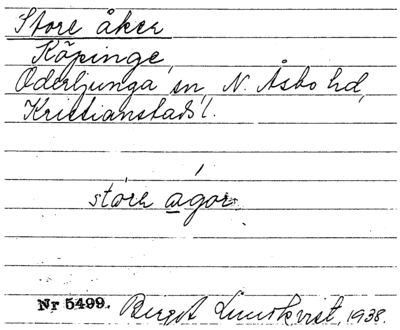 Store åker
Köpinge,
Oderljunga sn, N. Åsbo hd,
Kristianstads l.
store agor.
Nr 5499. Bergot Lundkvist, 1938.